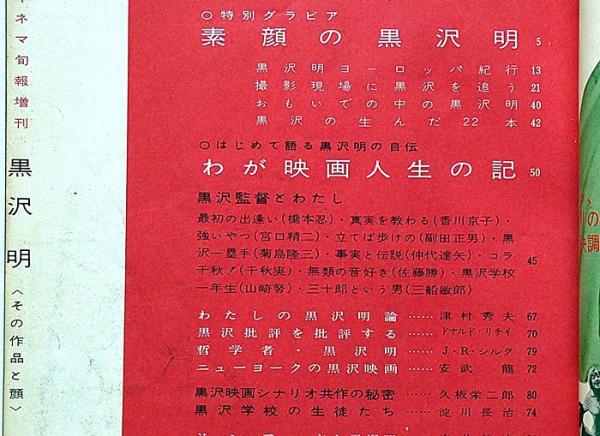 キネマ旬報増刊 黒沢明〈その作品と顔〉
○特別グラビア
素顔の黒沢明 5
黒沢明ヨーロッパ紀行 13
撮影現場に黒沢を追う 21
おもいでの中の黒沢明 40
黒沢の生んだ22本 42
○はじめて語る黒沢明の自伝
わが映画人生の記 50
黒沢監督とわたし
最初の出逢い(橋本忍)・真実を教わる(香川京子)・
強いやつ(宮口精二)・立てば歩けの(副田正男)・黒
沢一塁手(菊島隆三)・事実と伝説(仲代達矢)・コラ
千秋!(千秋実)・無類の音好き(佐藤勝)・黒沢学校
一年生(山崎努)・三十郎という男(三船敏郎)
45
わたしの黒沢明論……津村秀夫 67
黒沢批評を批評する……ドナルド・リチイ 70
哲学者・黒沢明……J・R・シルク 79
ニューヨークの黒沢映画……安武龍 72
黒沢映画シナリオ共作の秘密……久板栄二郎 80
黒沢学校の生徒たち……淀川長治 74